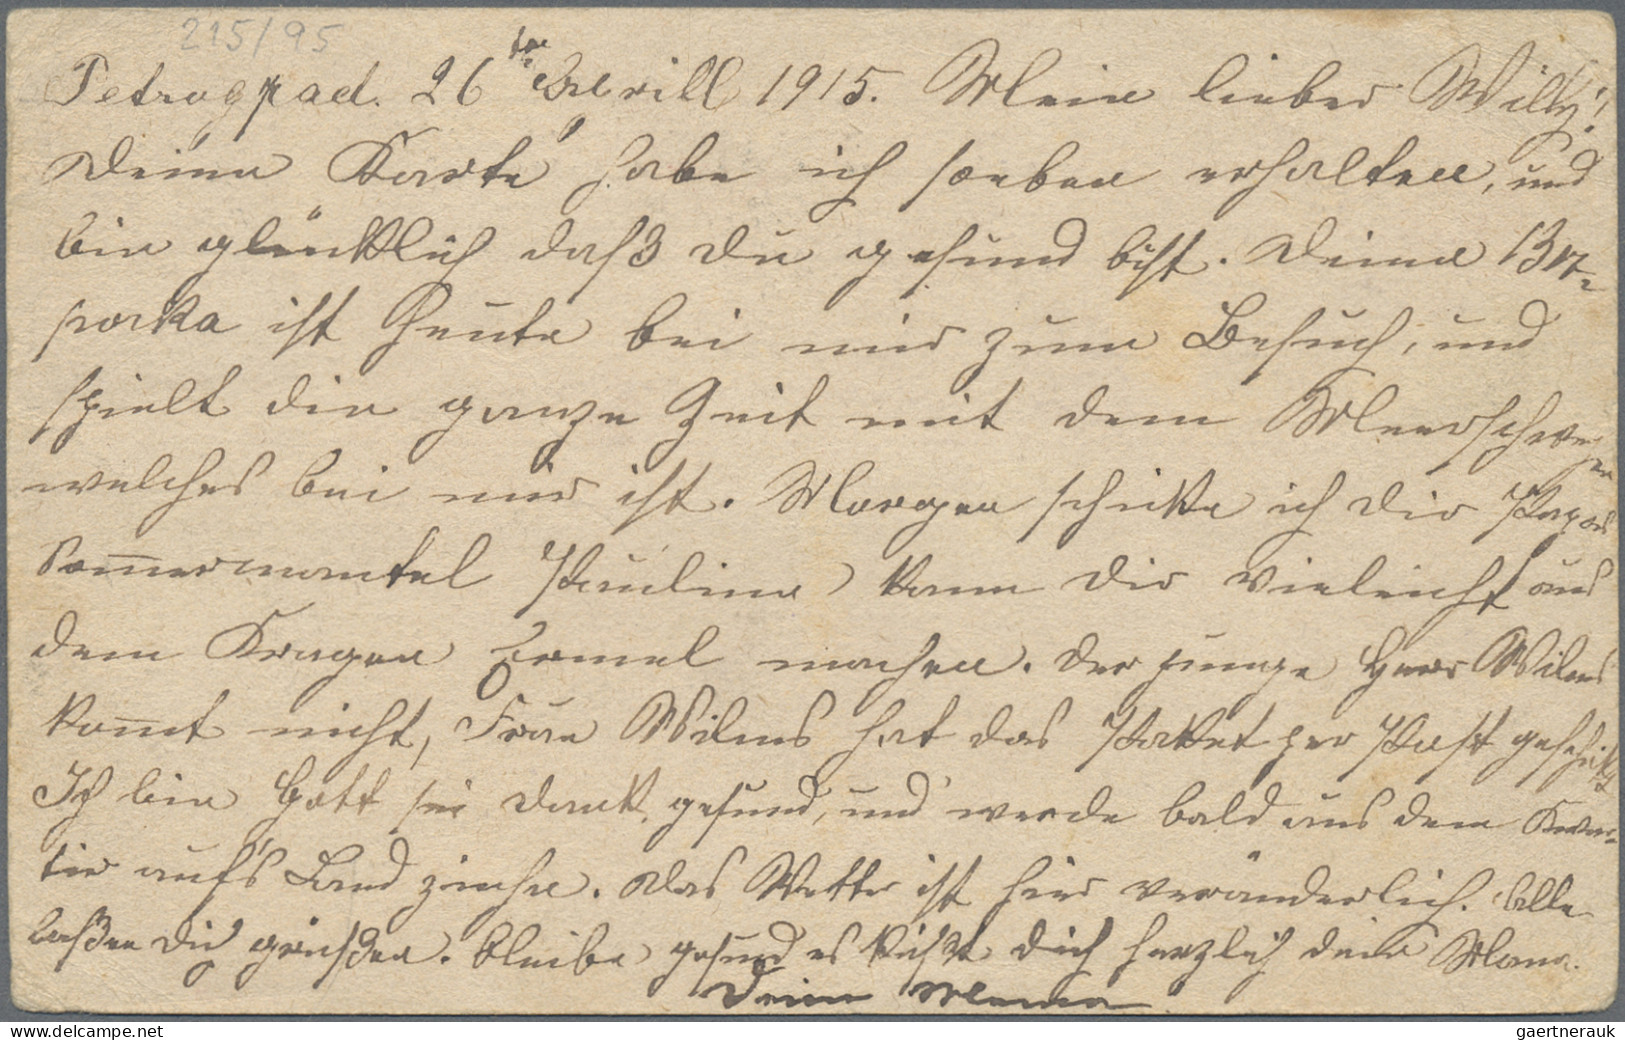 215/95
Petrograd. 26 te Aprill 1915. Mein lieber Willy!
Deine Karte habe ich soeben erhalten, und
bin glücklich daß du gesund bist. Deine
ist Heute bei mir zum Besuch, und
spielt die ganze Zeit mit dem
welches bei mir ist. Morgen schicke ich dir Papas
Som̅ermantel Paulina kann dir vieleicht aus
dem Kragen Ermel machen. Der junge Herr Wilms
kom̅t nicht, Frau Wilms hat das Packet per Post geschickt
Ich bin Gott sei dank gesund, und werde bald aus dem Kwar-
tir auf's Land ziehn. Das Wetter ist hier veränderlich. Alle
laßen dich grüßen. Bleibe gesund es küßt dich herzlich deine Mama.
Deine Mama
gaertnerauk
www.delcampe.net